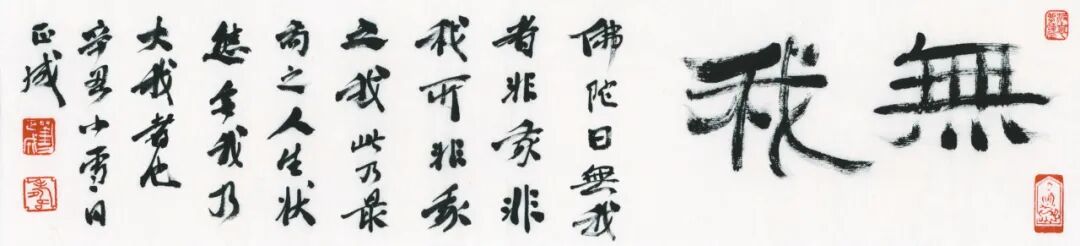 無我
佛陀曰無我
者非我非
我所非我
之我此乃最
高之人生状
態無我乃
大我者也
辛丑小雪日
正成